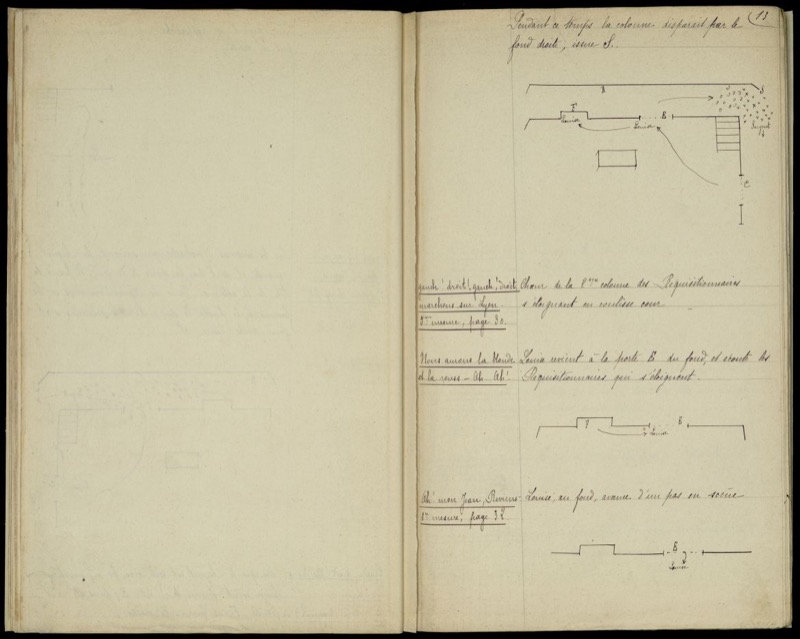 13
Pendant ce temps la colonne disparait par le
fond droite, issue S.
R
S
F
Louise
E
Louise
Sergent
C
gauch! droit! gauch! droit
marchons sur Lyon.
mesure, page 30.
Chœur de la 2me colonne des Réquisitionnaires
s'éloignant en coulisse cour
Nous aurons la blonde
et la rousse - Ah. Ah!
Louise revient à la porte E du fond, et écoute les
Réquisitionnaires qui s'éloignent.
F
E
Louise
Ah! mon Jean, Reviens-
1re mesure, page 32
Louise, au fond, avance d'un pas en scène
E
Louise